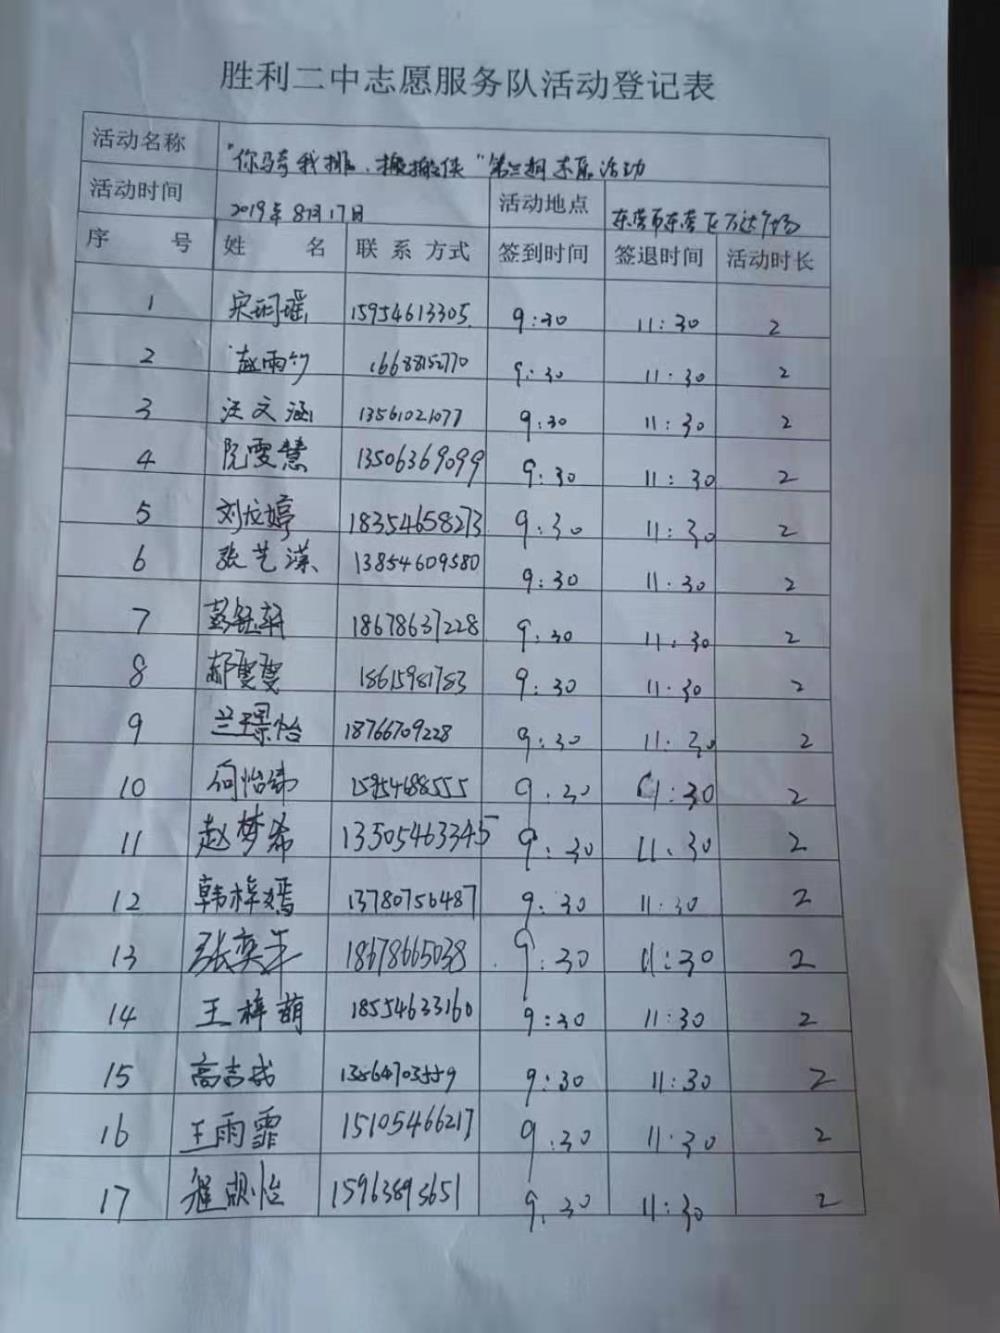 胜利二中志愿服务队活动登记表
活动名称 "你骑我排、搬搬侠"第三期 活动
活动时间 2019年8月17日 活动地点 东营市东营区万达广场
序号 姓名 联系方式 签到时间 签退时间 活动时长
1 宋珂瑶 15954613305 9:30 11:30 2
2 赵雨竹 16688152770 9:30 11:30 2
3 汪文涵 13561021077 9:30 11:30 2
4 阮雯慧 13506369099 9:30 11:30 2
5 刘文婷 18354658273 9:30 11:30 2
6 张艺潆 13854609580 9:30 11:30 2
7 彭钰轩 18678637228 9:30 11:30 2
8 郝雯雯 18615981783 9:30 11:30 2
9 兰璟怡 18766709228 9:30 11:30 2
10 何怡锦 15954688555 9:30 11:30 2
11 赵梦希 13505463345 9:30 11:30 2
12 韩梓嫣 13780756487 9:30 11:30 2
13 张奕年 18678665038 9:30 11:30 2
14 王梓萌 18554633160 9:30 11:30 2
15 高吉 13564703559 9:30 11:30 2
16 王雨霏 15105466217 9:30 11:30 2
17 程怡 15963895651 9:30 11:30 2